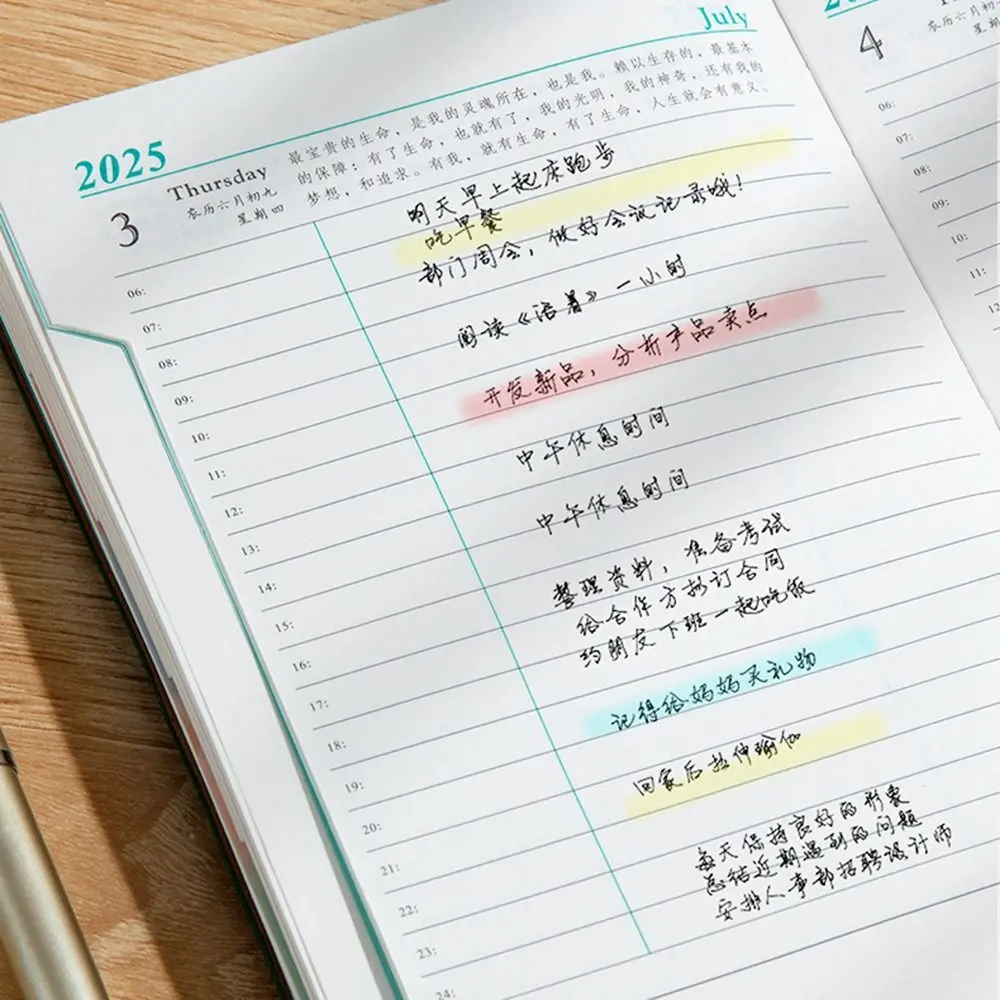 July
最宝贵的生命，是我的灵魂所在，也是我。赖以生存的，最基本
的保障：有了生命，也就有了，我的光明，我的神奇，还有我的
梦想，和追求。有我，就有生命，有了生命，人生就会有意义。
2025
Thursday
3
农历六月初九
星期四
明天早上起床跑步
吃早餐
部门周会，做好会议记录哦！
阅读《活着》一小时
开发新品，分析产品卖点
中午休息时间
中午休息时间
整理资料，准备考试
给合作方拟订合同
约朋友下班一起吃饭
记得给妈妈买礼物
回家后拉伸瑜伽
每天保持良好的形象
总结近期遇到的问题
安排人事部招聘设计师
06:
07:
08:
09:
10:
11:
12:
13:
14:
15:
16:
17:
18:
19:
20:
21:
22:
23:
24:
4
农历六月初
星期
06:
07:
08:
09:
10:
11: